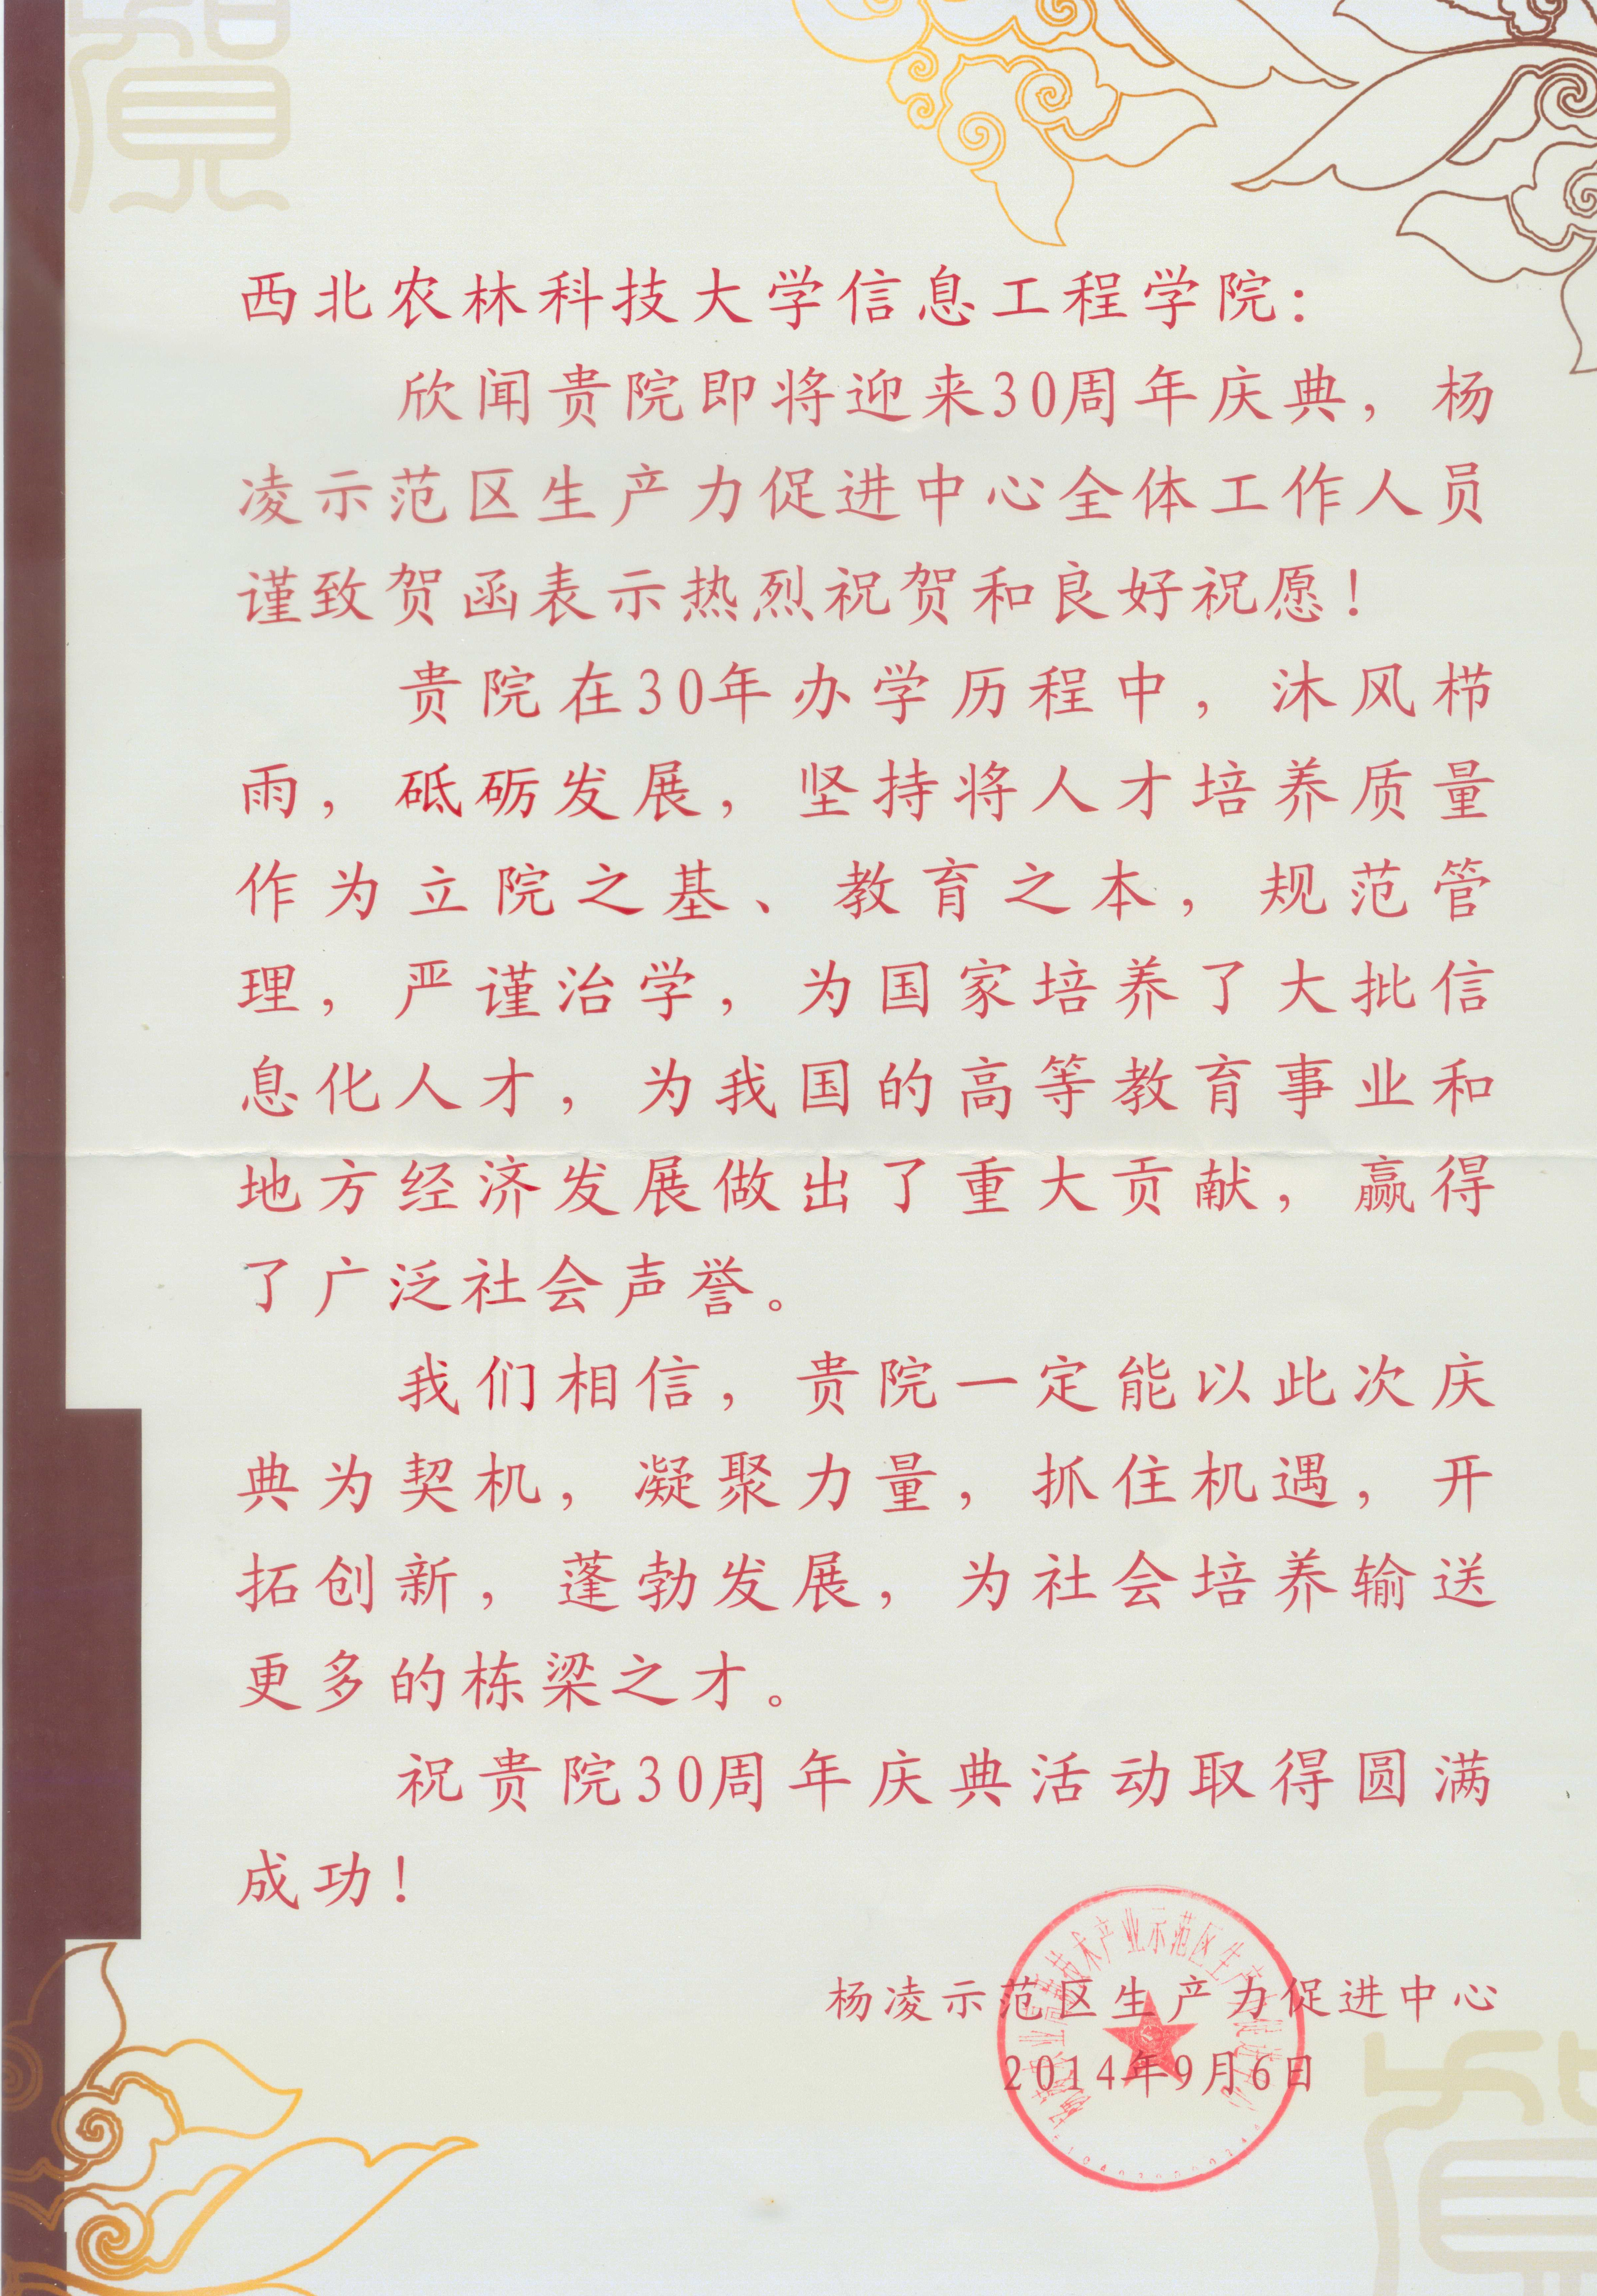 賀
西北农林科技大学信息工程学院：
欣闻贵院即将迎来30周年庆典，杨
凌示范区生产力促进中心全体工作人员
谨致贺函表示热烈祝贺和良好祝愿！
贵院在30年办学历程中，沐风栉
雨，砥砺发展，坚持将人才培养质量
作为立院之基、教育之本，规范管
理，严谨治学，为国家培养了大批信
息化人才，为我国的高等教育事业和
地方经济发展做出了重大贡献，赢得
了广泛社会声誉。
我们相信，贵院一定能以此次庆
典为契机，凝聚力量，抓住机遇，开
拓创新，蓬勃发展，为社会培养输送
更多的栋梁之才。
祝贵院30周年庆典活动取得圆满
成功！
杨凌示范区生产力促进中心
2014年9月6日
技术产业示范区生产力促进中心
賀